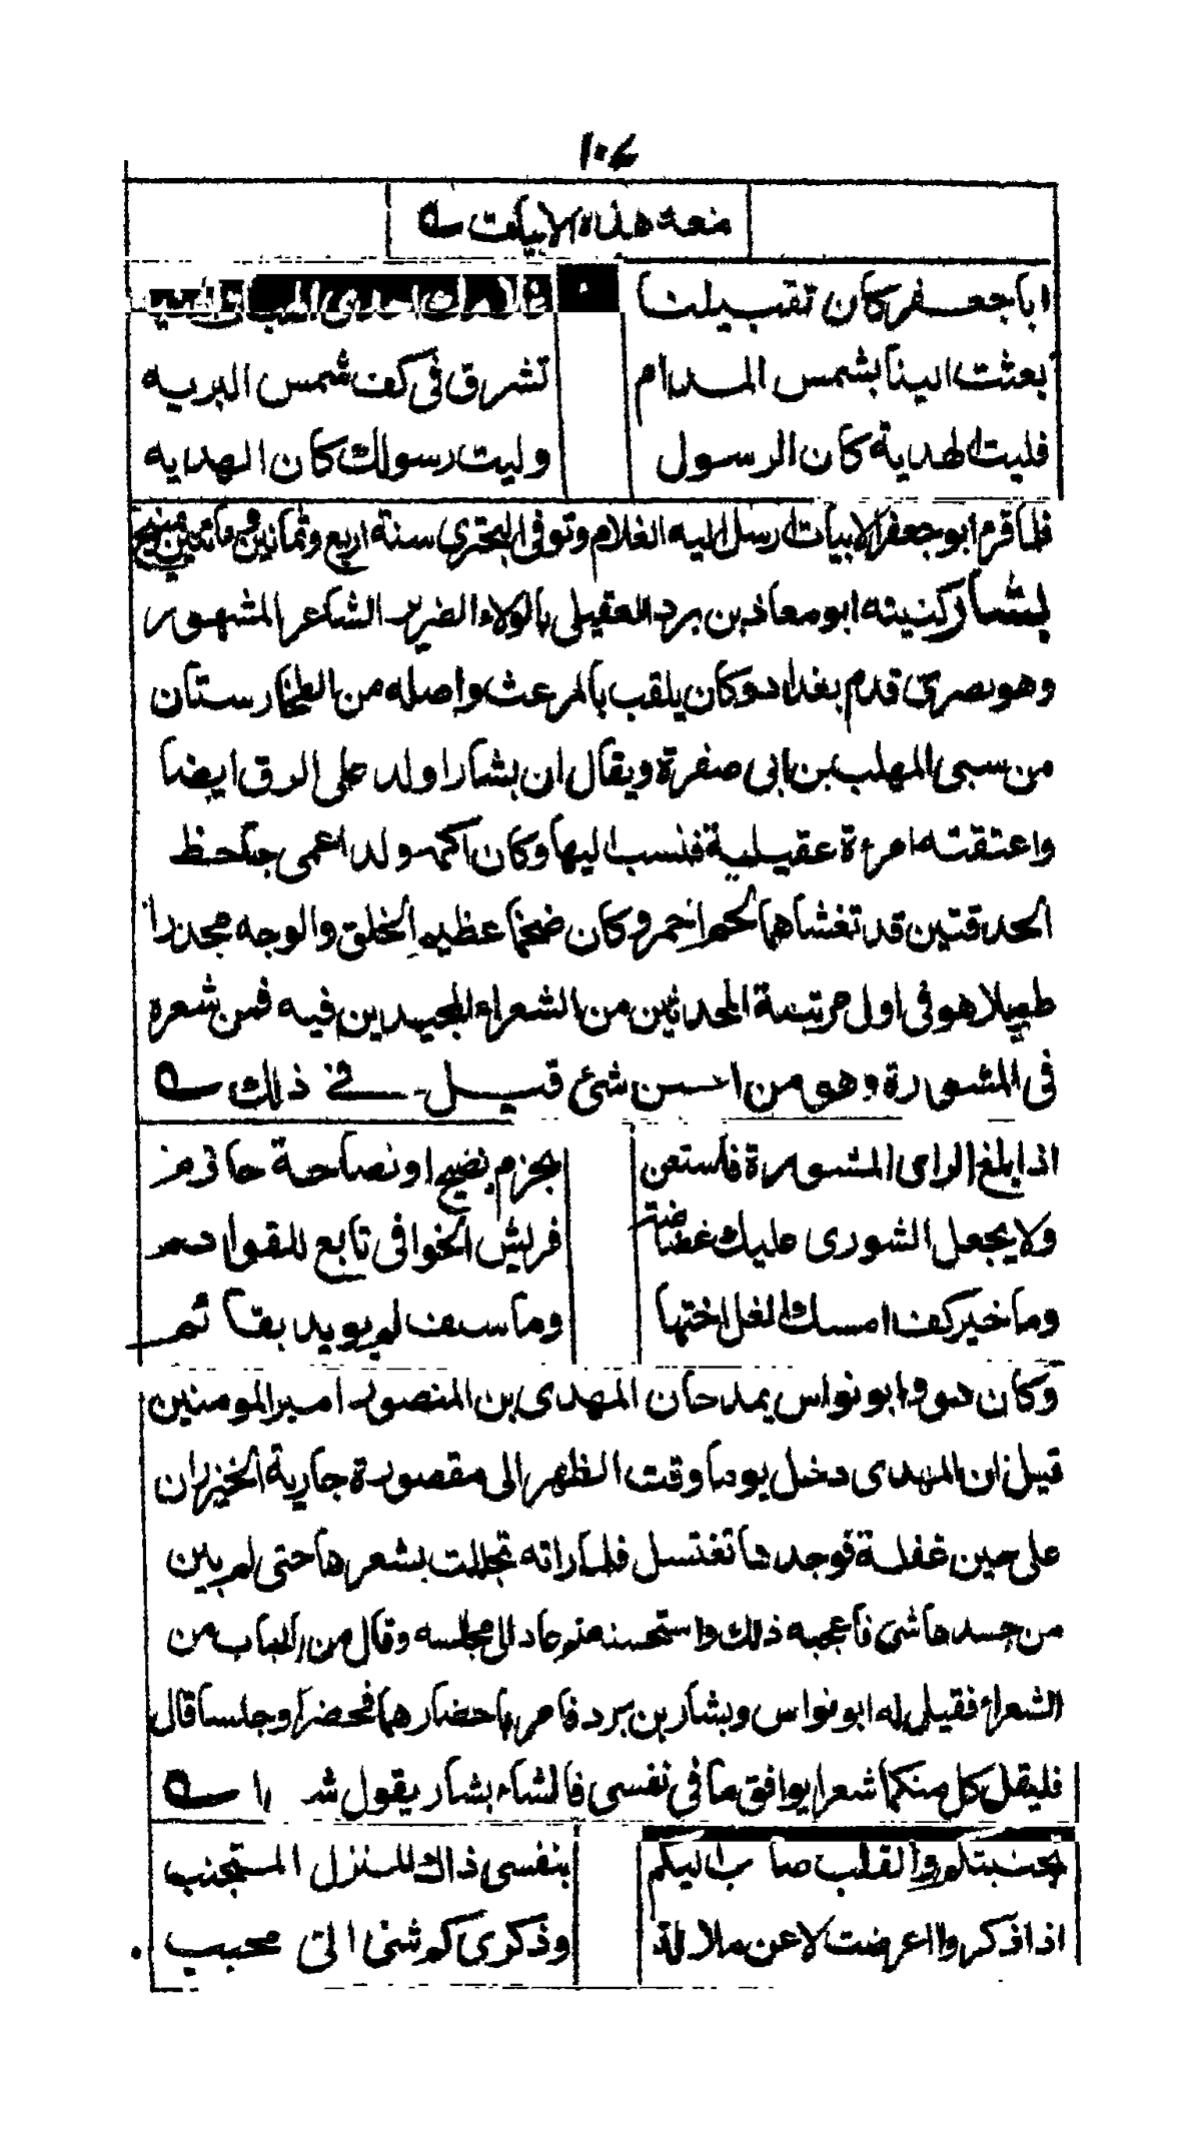 ١٠٤
معه هذه الابيات
ابا جعفر كان تقبيلنا غلامك احدى الهبات الهنيه
بعثت الينا بشمس المدام تشرق فى كف شمس البريه
فليت الهدية كان الرسول وليت رسولك كان الهديه
فلما قرم ابو جعفر الابيات ارسل اليه الغلام وتوفى البحترى سنة اربع وثمانين ومائتين بمنبج
بشار كنيته ابو معاذ بن برد العقيلى بالولاء الضرير الشاعر المشهور
وهو بصرى قدم بغداد وكان يلقب بالمرعث واصله من الطخارستان
من سبى المهلب بن ابى صفرة ويقال ان بشارا ولد على الرق ايضا
واعتقته امرءة عقيلية فنسب اليها وكان اكمه ولد اعمى جاحظ
الحدقتين قد تغشاهما لحم احمر وكان ضخما عظيم الخلق والوجه مجدرا
طويلا هو فى اول مرتبة المحدثين من الشعراء المجيدين فيه فمن شعره
فى المشورة وهو من احسن شئ قيل فى ذلك
اذا بلغ الراى المشورة فاستعن بحزم نضيج او نصاحة حازم
ولا يجعل الشورى عليك غضاضة فريش الخوافى تابع للقوادم
وما خير كف امسك الغل اختها وما سيف لم يويد بقائم
وكان هو وابو نواس يمدحان المهدى بن المنصور امير المومنين
قيل ان المهدى دخل يوما وقت الظهر الى مقصورة جارية الخيزران
على حين غفلة فوجدها تغتسل فلما راته تجللت بشعرها حتى لم يبن
من جسدها شئ فاعجبه ذلك واستحسنه منه عاد الى مجلسه وقال من بالباب من
الشعراء فقيل له ابو نواس وبشار بن برد فامر باحضارهما فحضرا وجلسا قال
فليقل كل منكما شعرا يوافق ما فى نفسى فانشاء بشار يقول شعرا
تجنبتكم والقلب صاب اليكم بنفسى ذاك المنزل المستجنب
اذا ذكروا اعرضت لا عن ملالة وذكرى كم شئ الى محبب